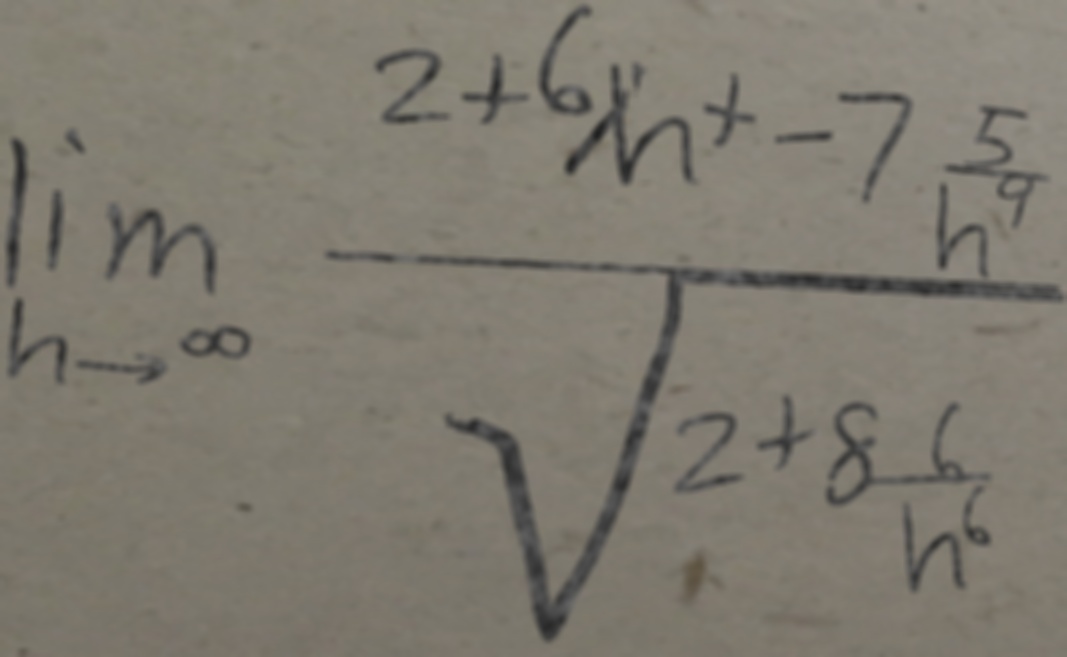 lim h→∞ (2+6 h^+ -7 5/h^9) / √(2+8 6/h^6)